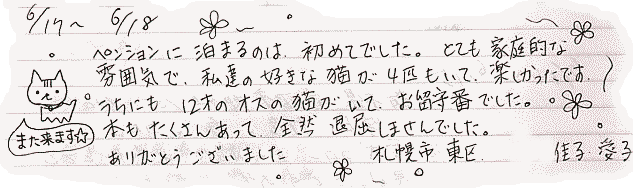 6/17〜 6/18
ペンションに泊まるのは、初めてでした。とても家庭的な
雰囲気で、私達の好きな猫が4匹もいて、楽しかったです。
うちにも12才のオスの猫がいて、お留守番でした。
本もたくさんあって、全然退屈しませんでした。
ありがとうございました
札幌市東区 佳子 愛子
また来ます☆